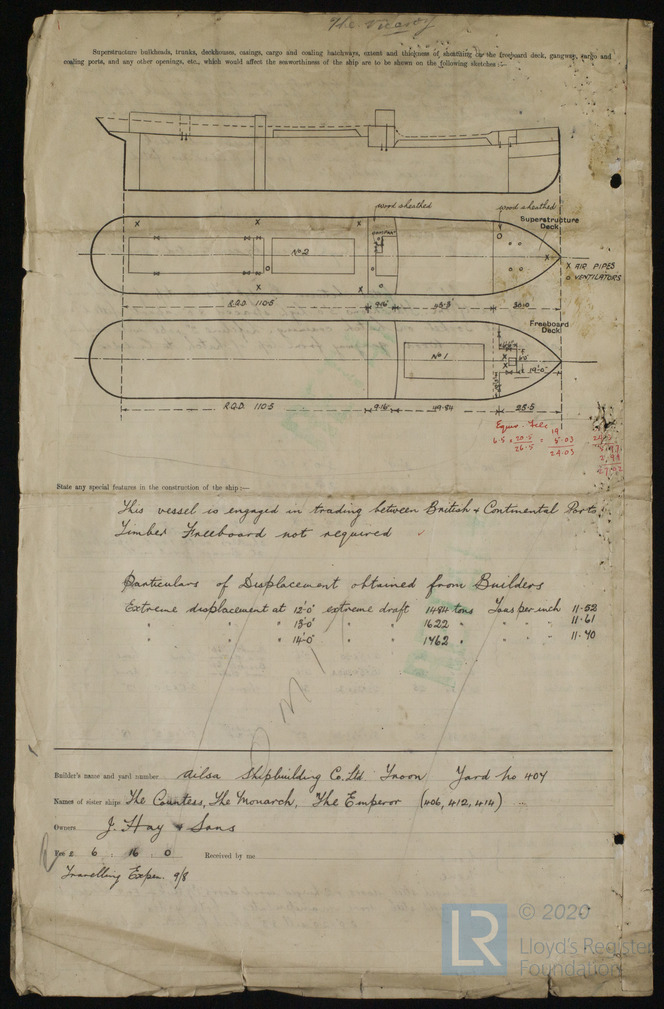 The Viceroy
Superstructure bulkheads, trunks, deckhouses, casings, cargo and coaling hatchways, extent and thickness of sheathing on the freeboard deck, gangway, cargo and
coaling ports, and any other openings, etc., which would affect the seaworthiness of the ship are to be shewn on the following sketches:—
wood sheathed
wood sheathed
Superstructure
Deck
No 2
X AIR PIPES
O VENTILATORS
R.Q.D. 110·5
9·16
Freeboard
Deck
No 1
19'-0"
R.Q.D. 110·5
9·16
49·84
25·5
Equiv.
6·5
26·5
19
5·03
24·03
State any special features in the construction of the ship:—
This vessel is engaged in trading between British & Continental Ports
Timber Freeboard not required
Particulars of Displacement obtained from Builders
Extreme displacement at 12'-0" extreme draft 1484 tons Tons per inch 11·52
" " " 13'-0" " " 1622 " " " " 11·61
" " " 14'-0" " " 1762 " " " " 11·70
Builder's name and yard number Ailsa Shipbuilding Co. Ltd. Troon Yard No 407
Names of sister ships The Countess, The Monarch, The Emperor (406, 412, 414)
Owners J. Hay & Sons
Fee £ 6 : 16 : 0 Received by me
Travelling Expen. 9/8
LR
© 2020
Lloyd's Register
Foundation